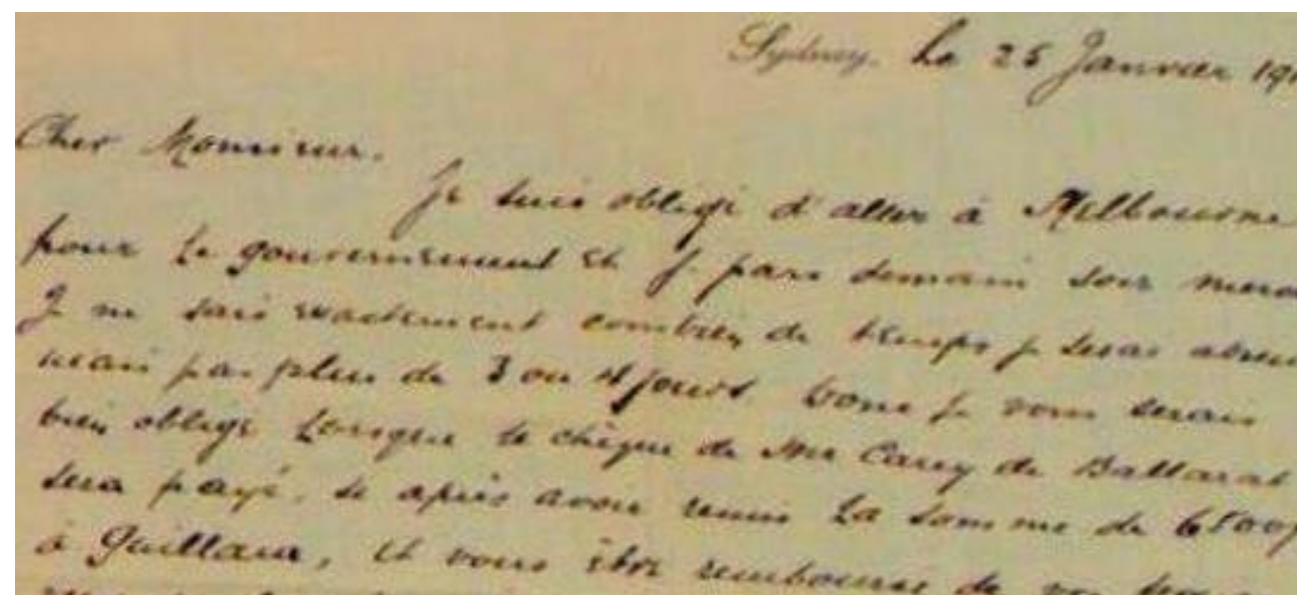 Sydney. Le 25 Janvier 191
Cher Monsieur.
Je suis obligé d'aller à Melbourne
pour le gouvernement et je pars demain soir
Je ne sais exactement combien de temps je serai
mais pas plus de 3 ou 4 jours. Donc je vous serais
bien obligé Lorsque le chèque de Mr Carey de Ballarat
sera payé, de après avoir remis La somme de
à Guillaux, et vous être remboursé de vos